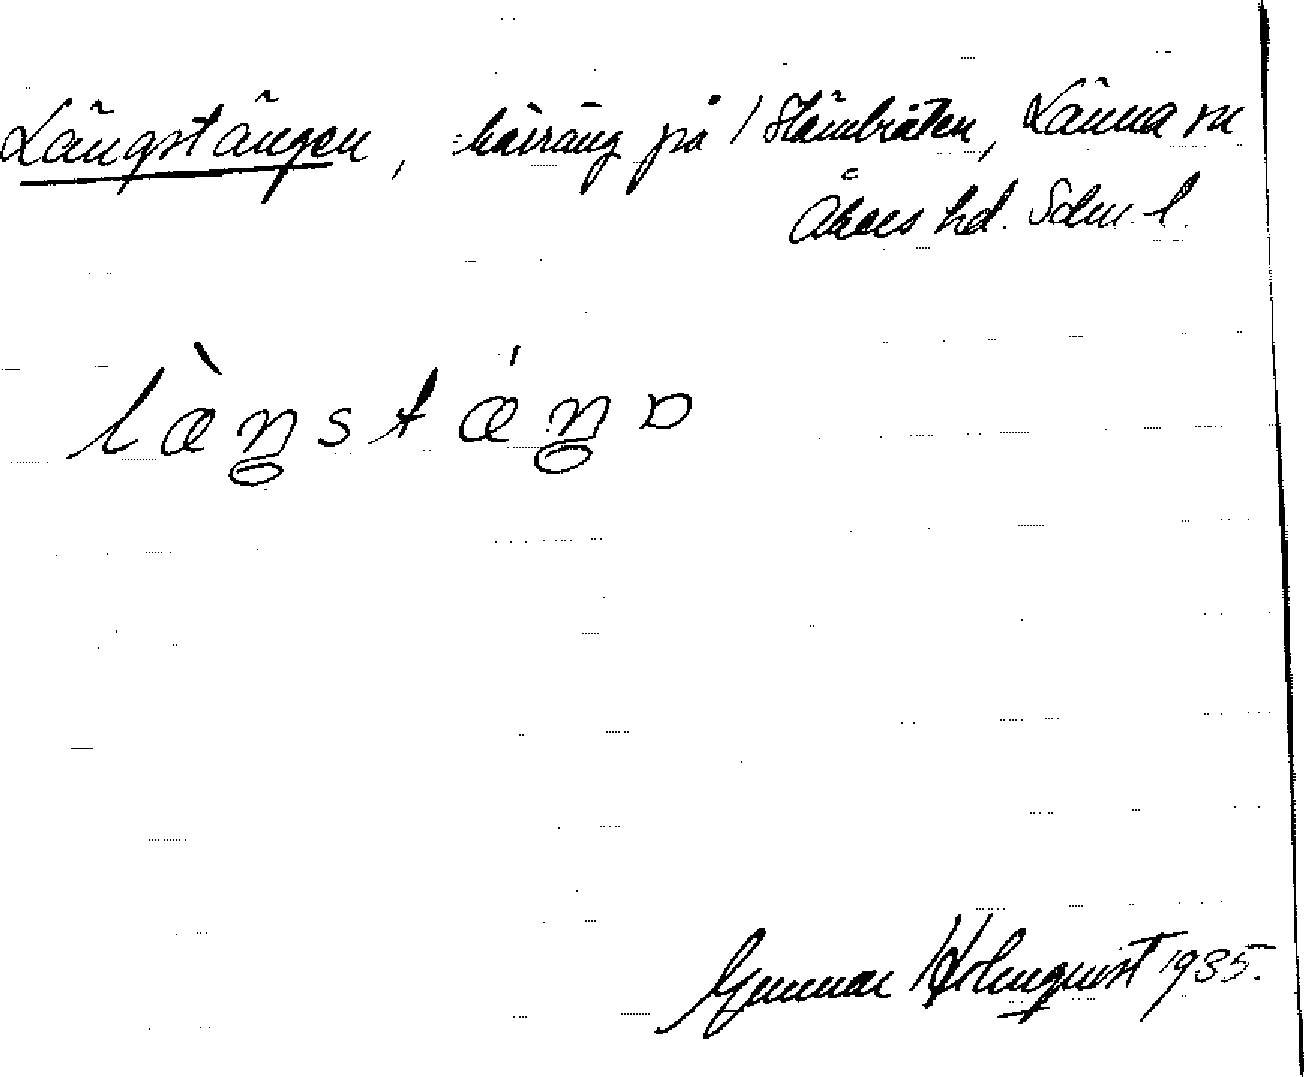 Längstängen, kärräng på / Hämbråten, Länna sn
Åkers hd. Sdm. l.
læ̀ŋstǽŋɒ
Gunnar Holmquist 1935.